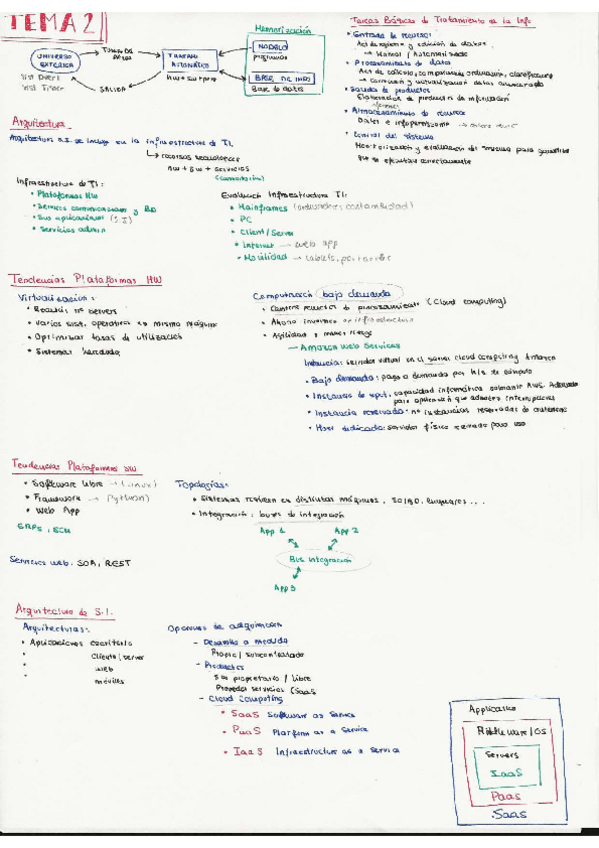 TEMA 2
Memorización
UNIVERSO EXTERIOR
TOMA DE DATOS
TRATAM. AUTOMÁTICO
HW + SW + pers
SALIDA
MODELO
programas
BASE DE INFO
Base de datos
Tareas Básicas de Tratamiento de la Info
• Entrada de recursos:
→ Manual / Automatizada
• Procesamiento de datos
• Salida de productos
Elaboración de productos de información
• Almacenamiento de recursos
• Control del sistema
que se efectúan correctamente
Arquitectura
Arquitectura S.I. se incluye en la infraestructura de T.I.
↳ recursos tecnológicos
HW + SW + Servicios
Infraestructura de TI:
• Plataformas HW
• Servicios comunicaciones y BD
• Sus aplicaciones (S.I)
• Servicios admin
Evaluación Infraestructura TI:
• Mainframes (ordenadores contabilidad)
• PC
• Client/Server
• Internet → web app
• Movilidad → tablets, pc, móvil
Tendencias Plataformas HW
Virtualización:
• Reducir nº servers
• Varios sist. operativos en misma máquina
• Optimizar tasas de utilización
• Sistemas
Computación bajo demanda
• de procesamiento (Cloud computing)
• Ahorro inversión en infraestructura
• Agilidad y menor riesgo
→ Amazon Web Services
Instancia: servidor virtual en el cloud computing Amazon
• Bajo demanda: pago a demanda por h/s de cómputo
• Instancia de spot: capacidad informática sobrante AWS. Adecuada
para aplicación que admiten interrupciones
• Instancia reservada: reservadas de antemano
• Host dedicado: servidor físico cerrado para uso
Tendencias Plataformas SW
• Software libre → (Linux)
• Framework → (Python)
• Web App
ERPs, SCM
Servicios web: SOA, REST
Topologías:
• Sistemas residen en distintas máquinas, SO, BD, lenguajes...
• Integración: buses de integración
App 1
App 2
Bus integración
App 3
Arquitectura de S.I.
Arquitecturas:
• Aplicaciones escritorio
• Cliente/server
• web
• móviles
Opciones de adquisición
- Desarrollo a medida
Propio / subcontratado
- Productos
SW propietario / libre
Proveedor servicios (SaaS
- Cloud Computing
• SaaS Software as Service
• PaaS Platform as a Service
• IaaS Infrastructure as a Service
Application
Middleware/OS
Servers
IaaS
Paas
Saas